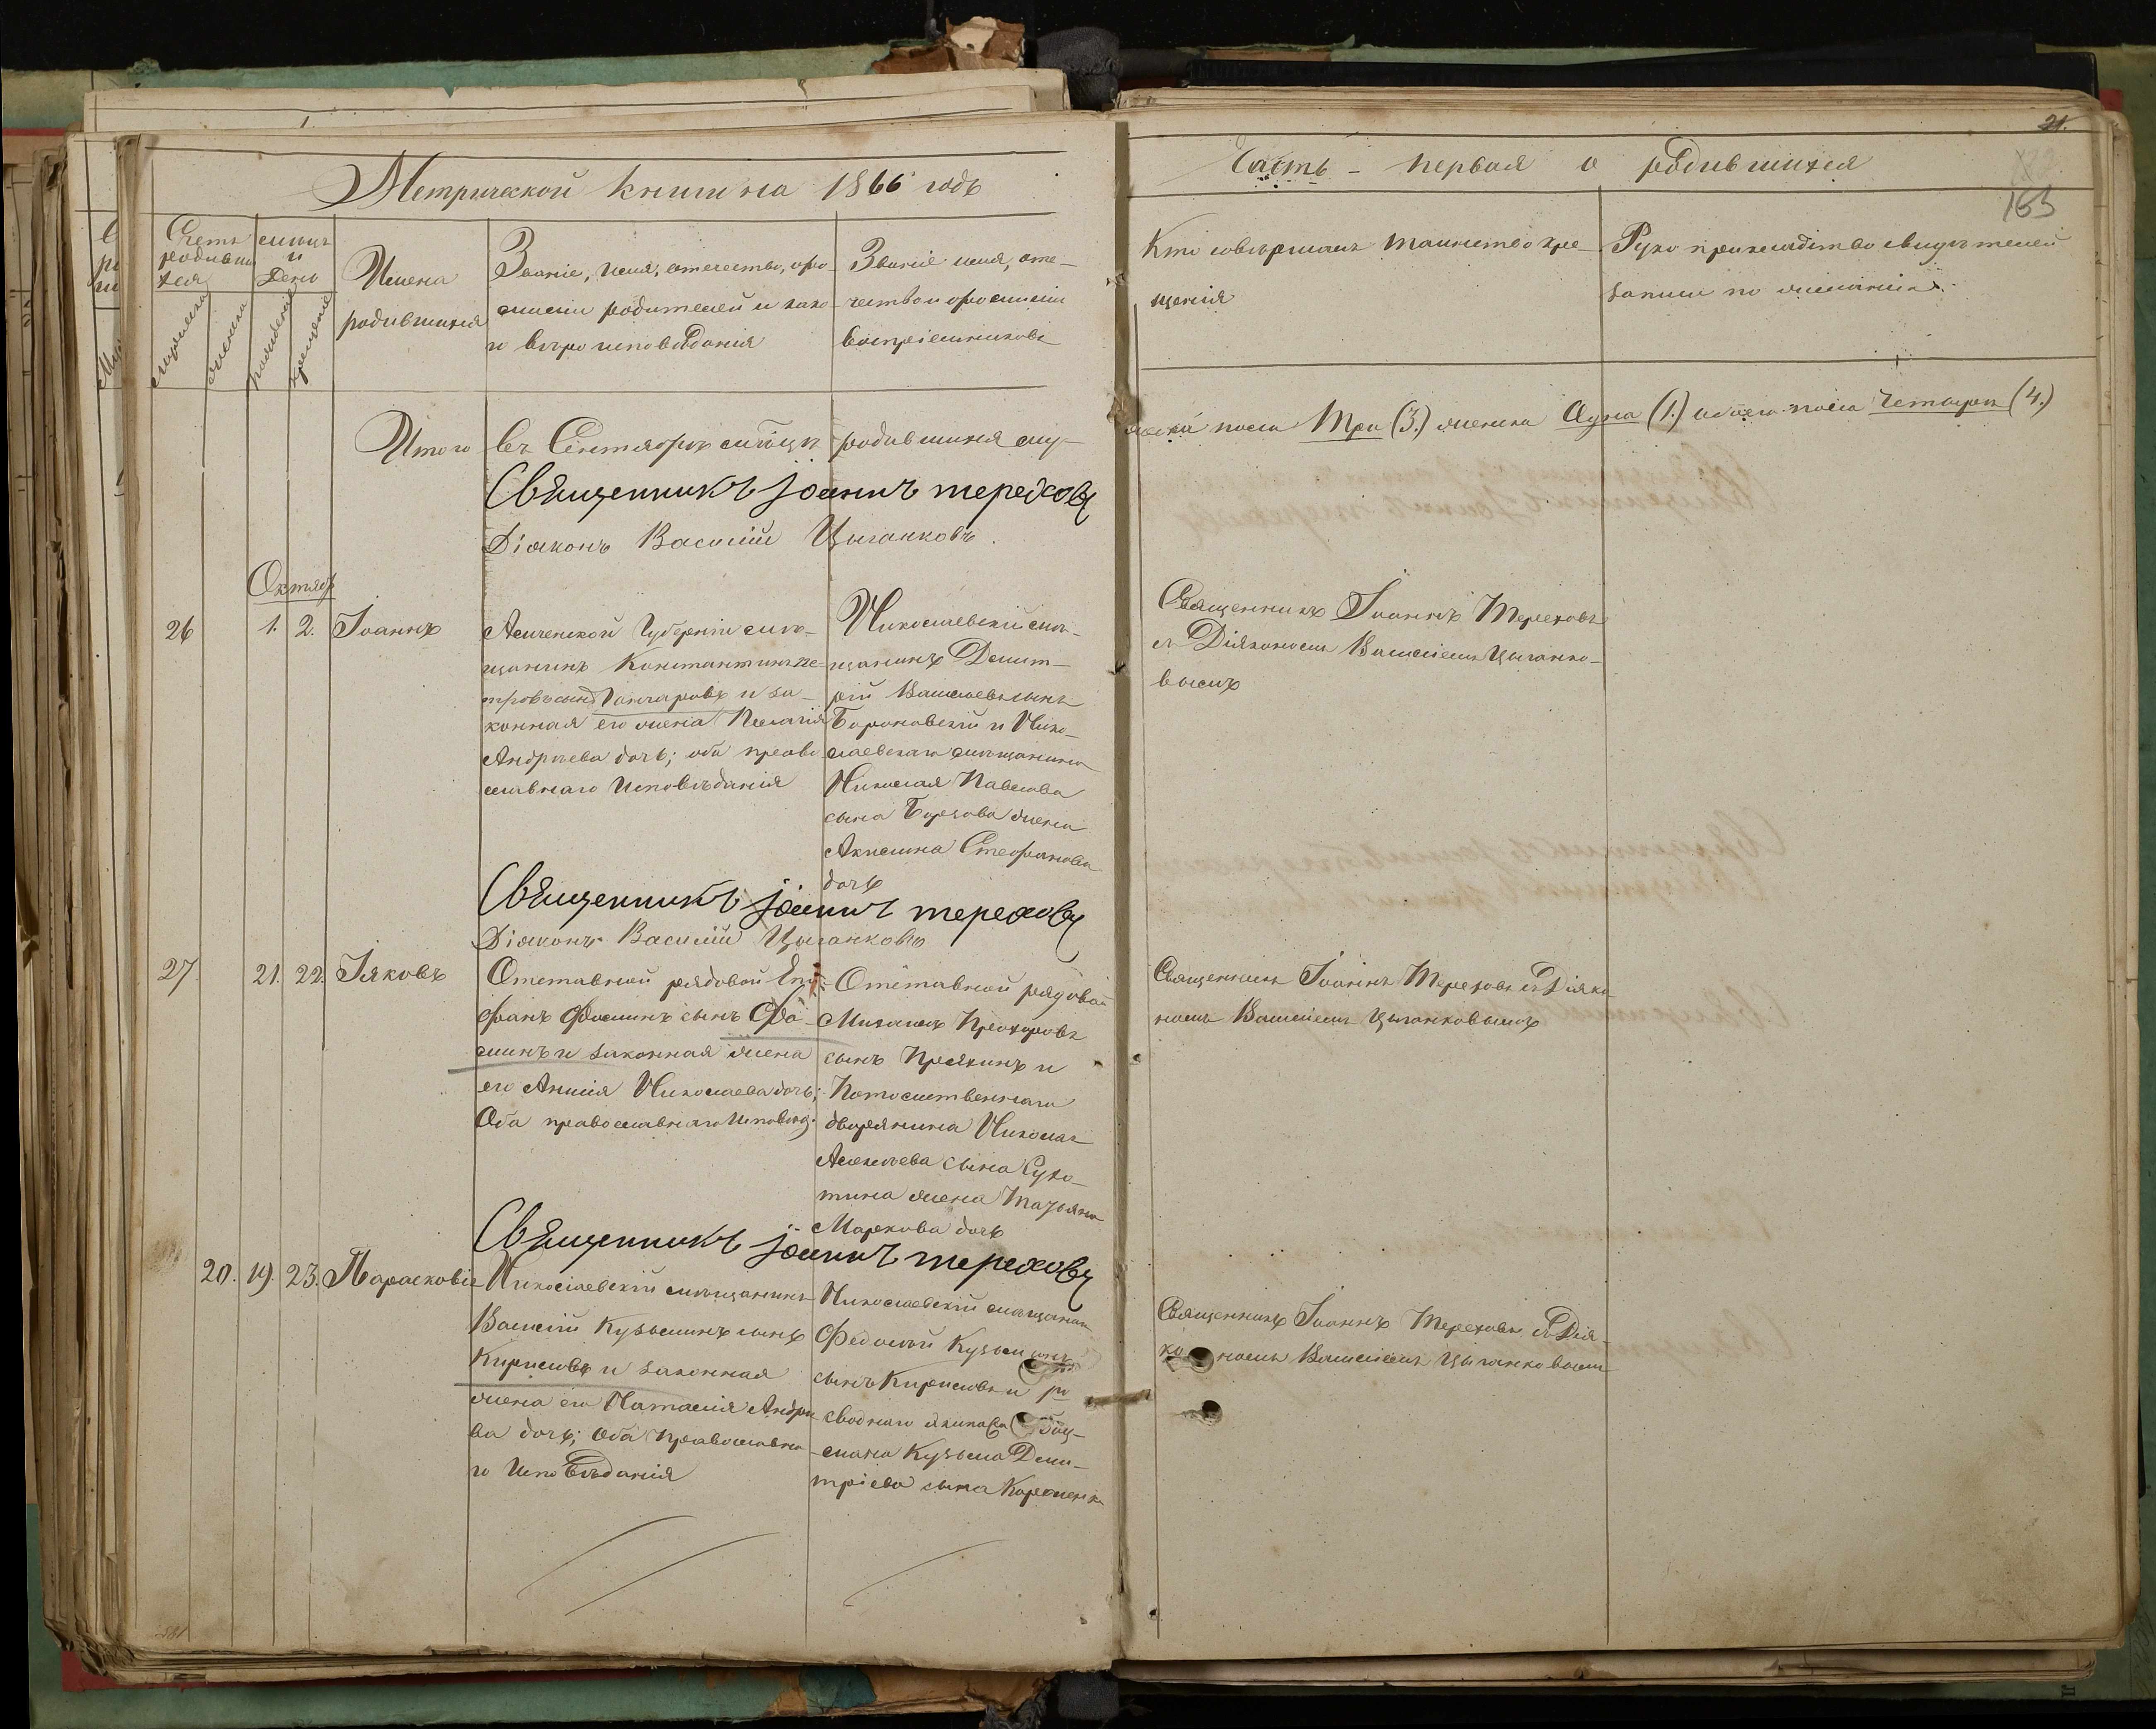 21.
163
Метрической книги на 1866 годъ
Часть - первая о родившихся
Счетъ родивших
хся
Мѣсяцъ
и
День
мужеска
женска
рожденія
крещенія
Имена
родившихся
Званіе, имя, отечество, фа-
милія родителей и како-
го вѣроисповѣданія
Званіе имя, оте-
чество и фамилія
воспріемниковъ
Кто совершалъ таинство кре-
щенія
Рукоприкладство свидѣтелей
записи по желанію
Итого въ Сентябрѣ мѣсяцѣ родившихся му-
жеска пола Три (3.) женска Одна (1.) обоего пола Четыре (4.)
Священникъ Іоаннъ Тереховъ
Діаконъ Василій Цыганковъ.
Октябр
26 1. 2. Іоаннъ
губерніи мѣ-
щанинъ Константинъ Пе-
тровъ сынъ Гончаровъ и за-
конная его жена Пелагія
Андреева дочь; оба право-
славнаго Исповѣданія
Николаевскій мѣ-
щанинъ Димит-
рій Васильевъ сынъ
и Нико-
лаевскаго мѣщанина
Николая Павлова
сына жена
Акилина Стефанова
дочь
Священникъ Іоаннъ Тереховъ
съ Діакономъ Василіемъ Цыганко-
вымъ
Священникъ Іоаннъ Тереховъ
Діаконъ Василій Цыганковъ
27. 21. 22. Іяковъ
Отставной рядовой Епи-
фанъ Фоминъ сынъ Фо-
минъ и законная жена
его Анна Николаева дочь;
Оба православнаго Исповед.
Отставной рядовой
Михаилъ Прохоровъ
сынъ и
Потомственнаго
дворянина Николая
Алексѣева сына Сухо-
тина жена Татьяна
Маркова дочь
Священникъ Іоаннъ Тереховъ съ Діяко-
номъ Василіемъ Цыганковымъ
Священникъ Іоаннъ Тереховъ
20. 19. 23. Парасковія
Николаевскій мѣщанинъ
Василій Кузьминъ сынъ
Кириловъ и законная
жена его Наталія Андре
ва дочь; Оба Православна-
го Исповѣданія
Николаевскій мѣщанин
Федотій Кузьминъ
сынъ Кириловъ и
сводного экипажа
Кузьма Дими-
тріева сына
Священникъ Іоаннъ Тереховъ съ Дія-
кономъ Василіемъ Цыганковым